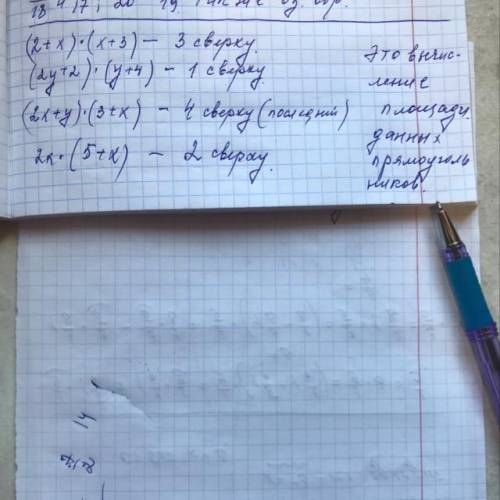 18 17; 20 19 также
(2+x)·(x+3) — 3 сверху.
(2y+2)·(y+4) — 1 сверху.
(2x+y)·(3+x) — 4 сверху (последний)
2x·(5+x) — 2 сверху.
Это вычис-
ление
площади
данных
прямоуголь
ников.
14